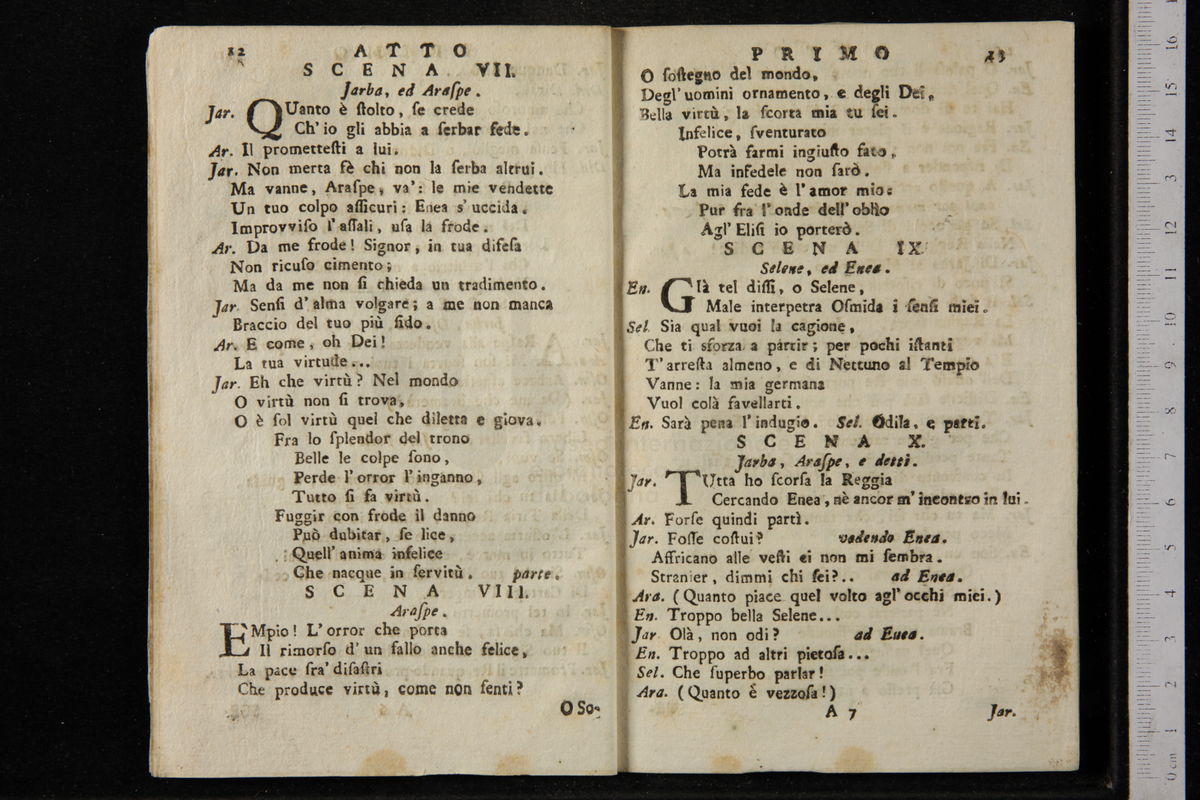 12
ATTO
SCENA VII.
Jarba, ed Araſpe.
Jar. QUanto è ſtolto, ſe crede
Ch' io gli abbia a ſerbar fede.
Ar. Il prometteſti a lui.
Jar. Non merta fè chi non la ſerba altrui.
Ma vanne, Araſpe, va': le mie vendette
Un tuo colpo aſſicuri: Enea s' uccida.
Improvviſo l' aſſali, uſa la frode.
Ar. Da me frode! Signor, in tua difeſa
Non ricuſo cimento;
Ma da me non ſi chieda un tradimento.
Jar. Senſi d' alma volgare; a me non manca
Braccio del tuo più fido.
Ar. E come, oh Dei!
La tua virtude...
Jar. Eh che virtù? Nel mondo
O virtù non ſi trova,
O è ſol virtù quel che diletta e giova.
Fra lo ſplendor del trono
Belle le colpe ſono,
Perde l' orror l' inganno,
Tutto ſi fa virtù.
Fuggir con frode il danno
Può dubitar, ſe lice,
Quell' anima infelice
Che nacque in ſervitù. parte.
SCENA VIII.
Araſpe.
EMpio! L' orror che porta
Il rimorſo d' un fallo anche felice,
La pace fra' diſaſtri
Che produce virtù, come non ſenti?
O So-
PRIMO
13
O ſoſtegno del mondo,
Degl' uomini ornamento, e degli Dei,
Bella virtù, la ſcorta mia tu ſei.
Infelice, ſventurato
Potrà farmi ingiuſto fato,
Ma infedele non ſarò.
La mia fede è l' amor mio:
Pur fra l' onde dell' oblìo
Agl' Eliſi io porterò.
SCENA IX.
Selene, ed Enea.
En. GIà tel diſſi, o Selene,
Male interpetra Oſmida i ſenſi miei.
Sel. Sia qual vuoi la cagione,
Che ti sforza a partir; per pochi iſtanti
T' arreſta almeno, e di Nettuno al Tempio
Vanne: la mia germana
Vuol colà favellarti.
En. Sarà pena l' indugio. Sel. Odila, e parti.
SCENA X.
Jarba, Araſpe, e detti.
Jar. TUtta ho ſcorſa la Reggia
Cercando Enea, nè ancor m' incontro in lui.
Ar. Forſe quindi partì.
Jar. Foſſe coſtui? vedendo Enea.
Affricano alle veſti ei non mi ſembra.
Stranier, dimmi chi ſei?.. ad Enea.
Ara. (Quanto piace quel volto agl' occhi miei.)
En. Troppo bella Selene...
Jar. Olà, non odi? ad Enea.
En. Troppo ad altri pietoſa...
Sel. Che ſuperbo parlar!
Ara. (Quanto è vezzoſa!)
A 7
Jar.